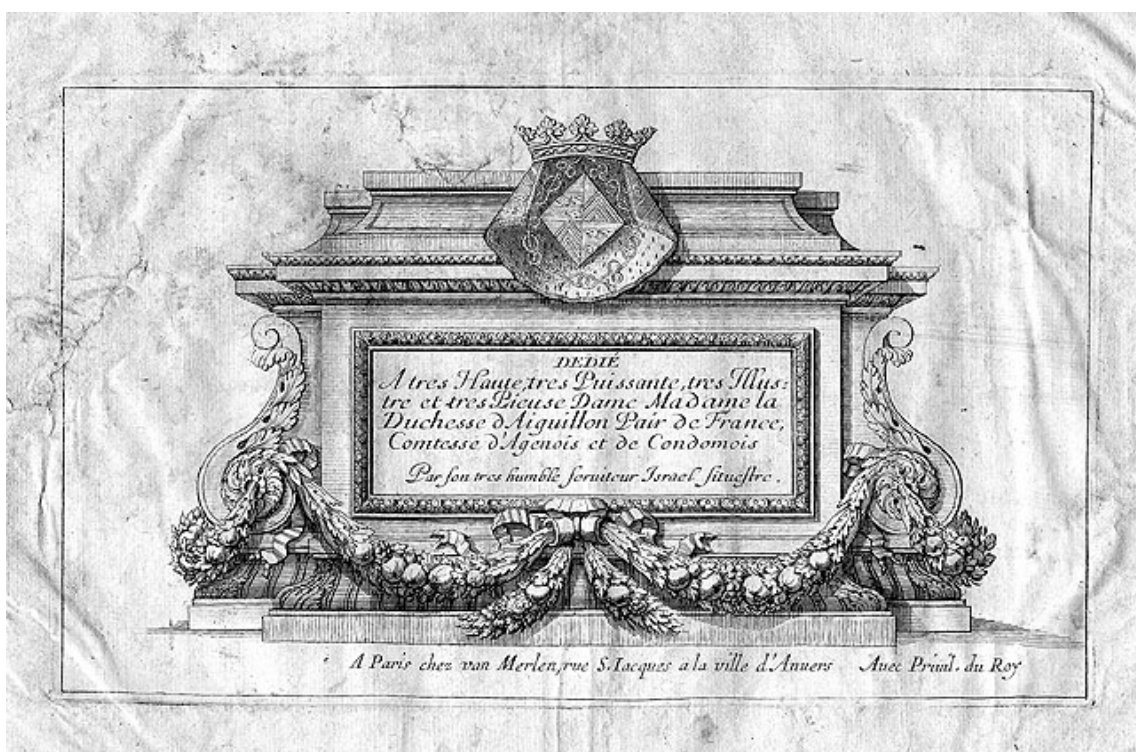 DEDIÉ
A tres Haute, tres Puissante, tres Illus:
tre et tres Pieuse Dame Madame la
Duchesse d'Aiguillon Pair de France,
Comtesse d'Agenois et de Condomois
Par son tres humble seruiteur Israel siluestre.
A Paris chez van Merlen, rue S. Iacques a la ville d'Anuers Auec Priuil. du Roy